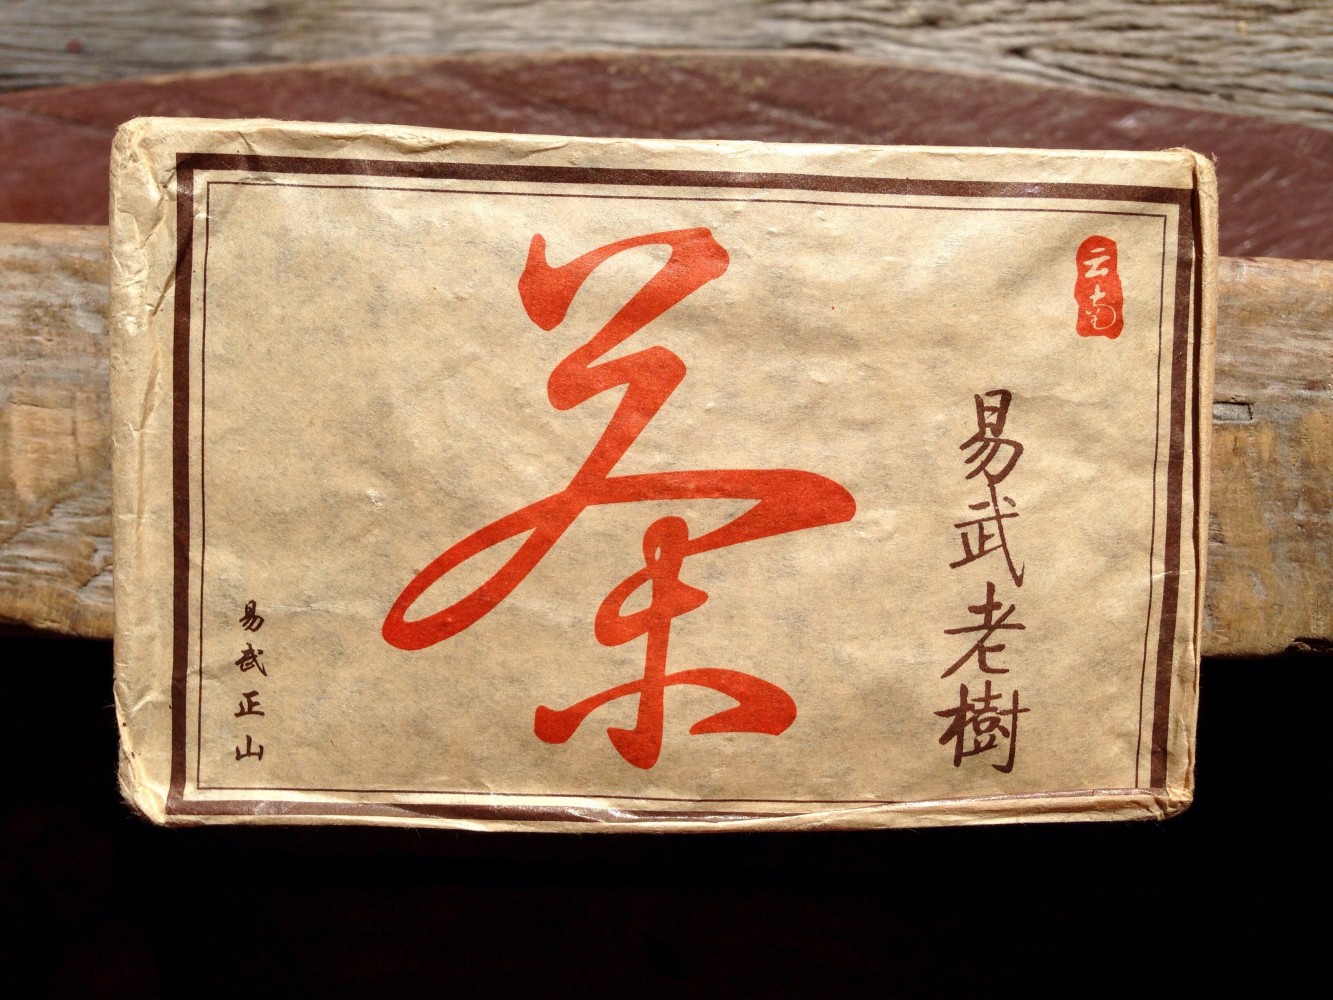 云南
易武老樹
茶
易武正山